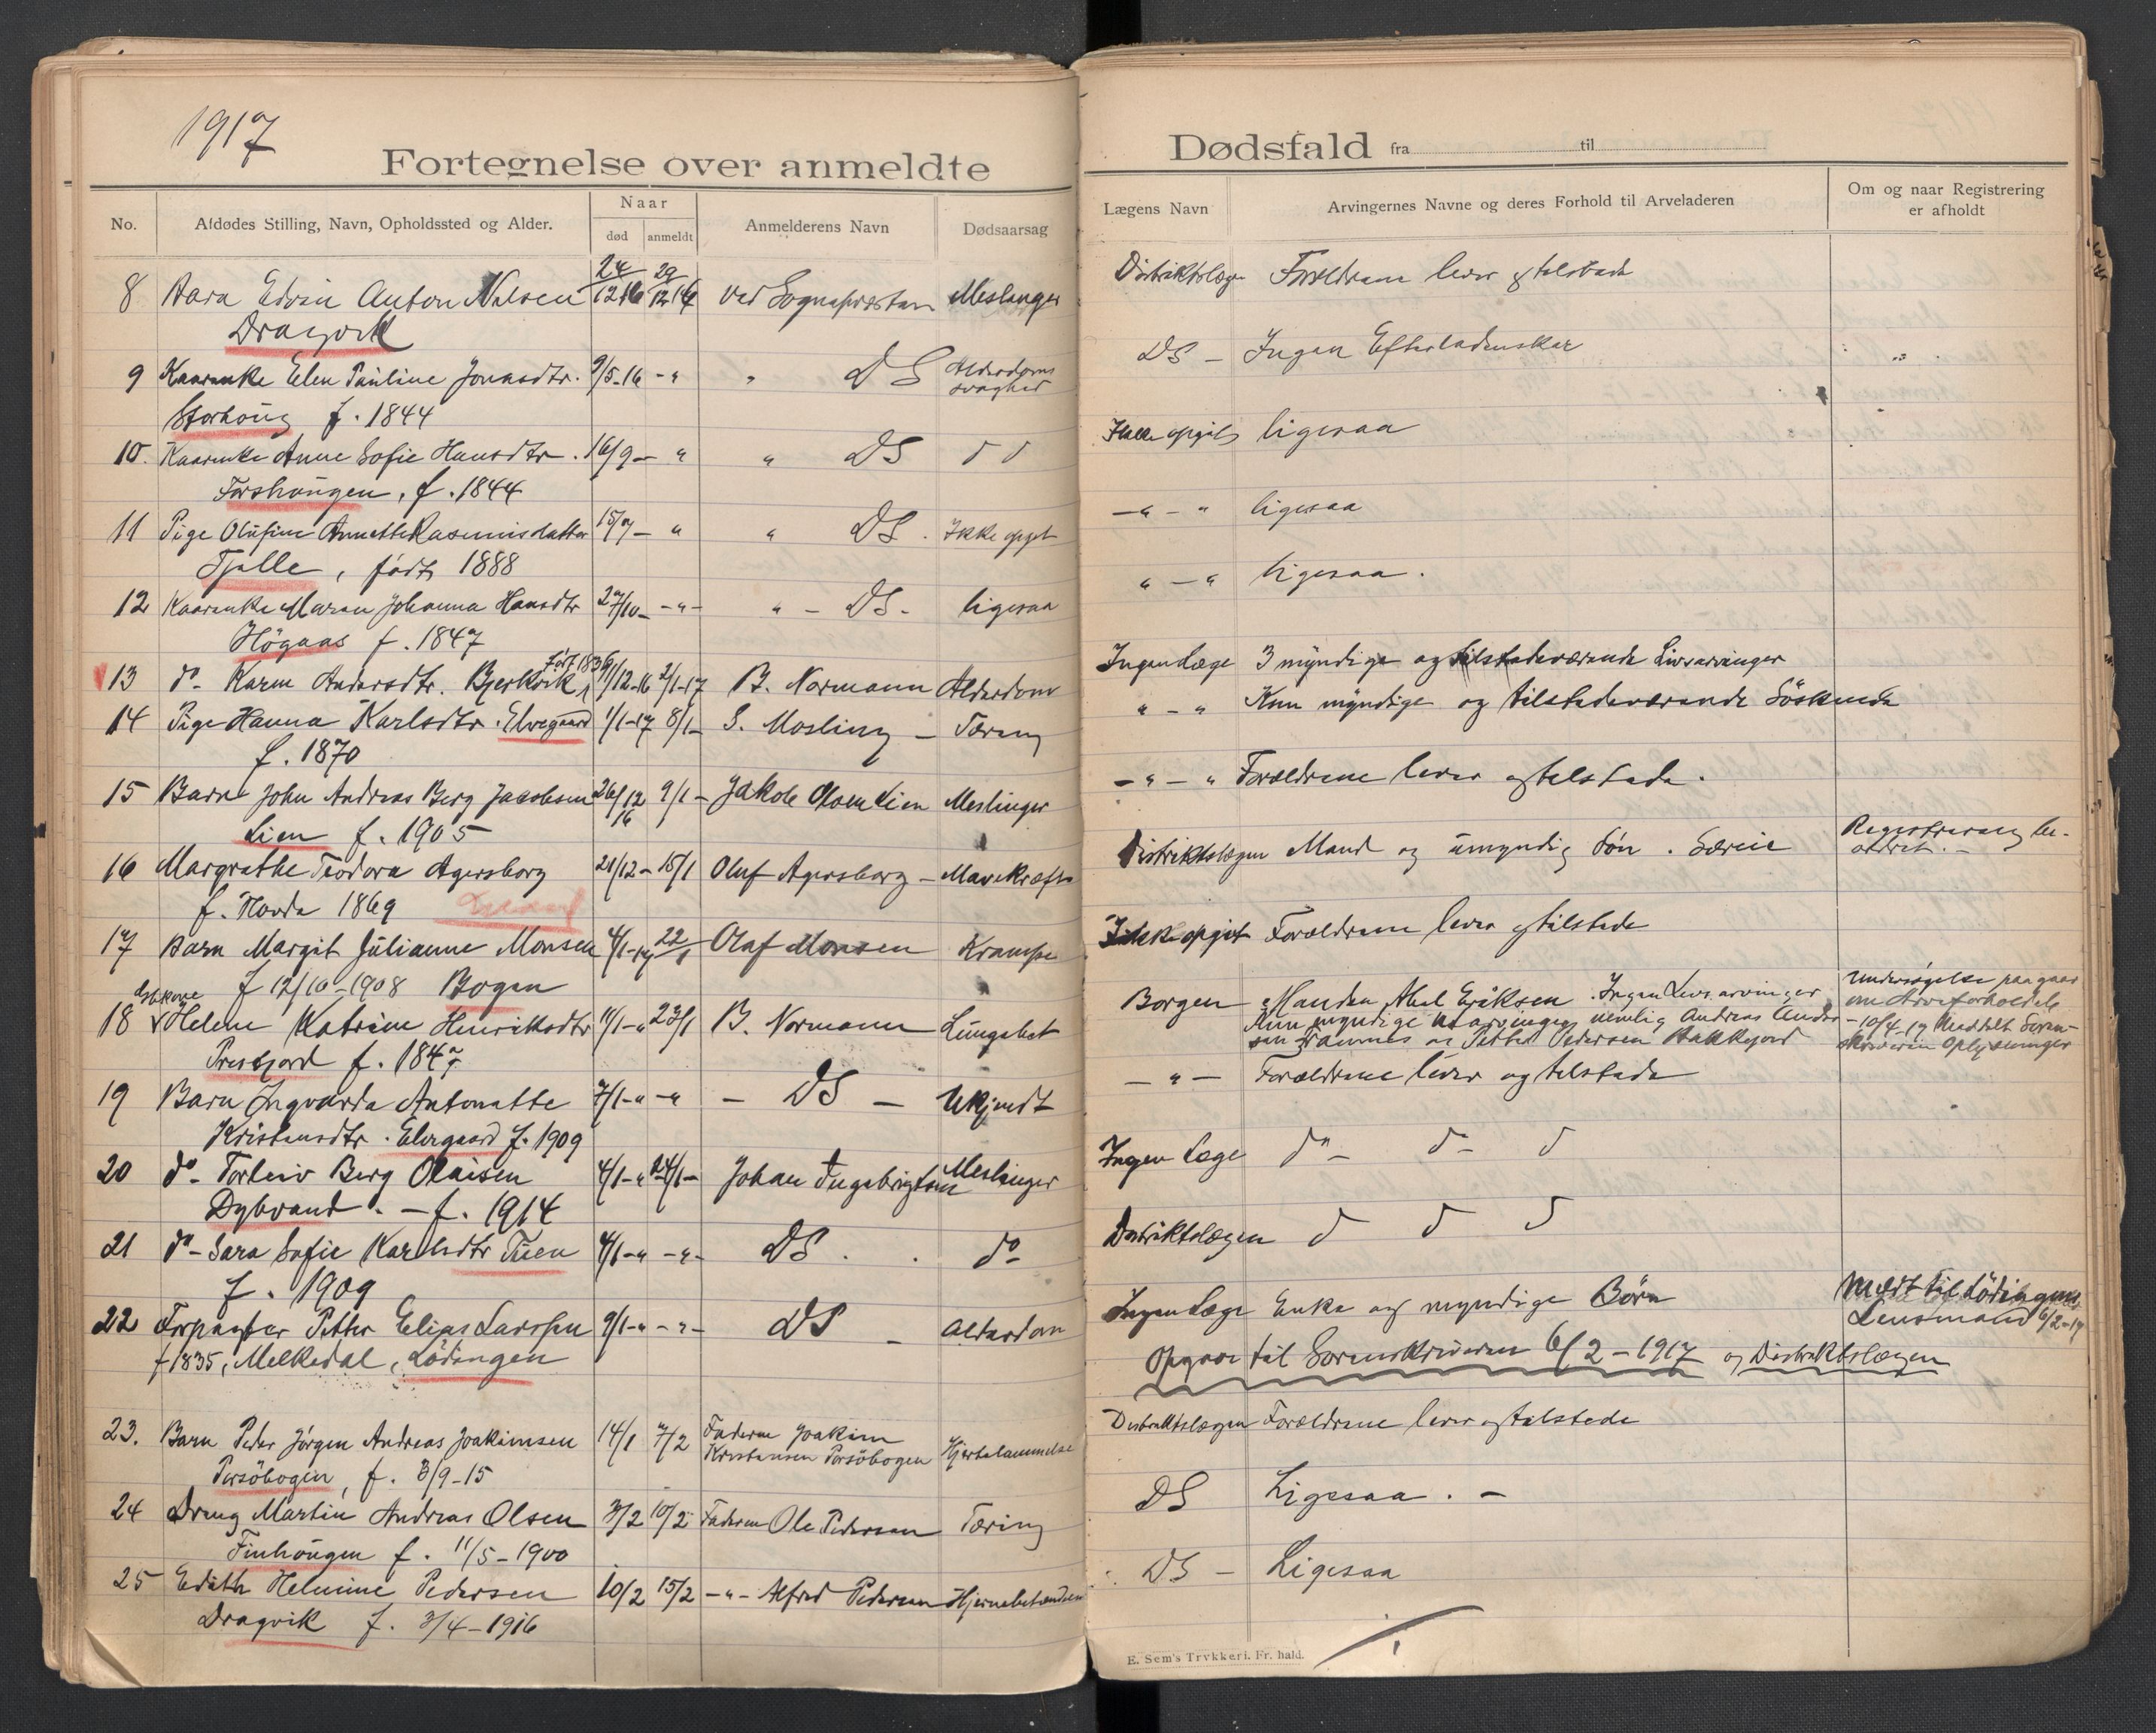 1917
Fortegnelse over anmeldte
No.
Afdødes Stilling, Navn, Opholdssted og Alder.
Naar
død
anmeldt
Anmelderens Navn
Dødsaarsag
8 Barn Edvin Anton Nilsen 24/12 16 29/12 16 ved Sognepresten Meslinger
Dragvik
9 Kaarenke Elen Pauline Jonasdtr. 9/5-16 - " " DS Alderdoms
svaghed
Storhaug f. 1844
10. Kaarenke Anne Sofie Hansdtr. 16/9 - " " DS d d
Forshaugen, f. 1844
11 Pige Olufine Annette Rasmusdatter 15/7 - " " DS. Ikke opgit
Tjelle, født 1888
12 Kaarenke Maren Johanna Hansdtr 27/10 - - " - " - DS - ligesaa
Högaas f. 1847
13 do - Karen Andersdtr. Bjerkvik, født 1836 11/12-16 2/1-17 B. Normann Alderdom
14 Pige Hanna Karlsdtr. Elvegaard 1/1-17 8/1 - S. Mosling - Tæring
f. 1870
15 Barn John Andreas Berg Jacobsen 26/12 16 9/1 - Jakob Olsen Lien Meslinger
Lien f. 1905
16 Margrethe Teodora Agersborg 21/12 - 15/1 Oluf Agersborg - Mavekræft
f. Hovde 1869
17 Barn Margit Julianne Monsen 4/1-17 22/1 Olaf Monsen Krampe
f 12/10-1908 Bogen
18 Helene Katrine Henriksdtr 11/1 - " 23/1 B. Normann Lungebet
Prestjord f. 1847
19 Barn Ingvarda Antonette 7/1 - " - " - DS - Ukjendt
Kristensdtr. Elvegaard f. 1909
20 do - Torleiv Berg Olaisen 4/1 - " 24/1 - Johan Ingebrigtsen Meslinger
Dybvand. - f. 1914
21 do - Sara Sofie Karlsdtr Tuen 4/1 - " - " - DS. do
f. 1909
22 Forpagter Petter Elias Larssen 9/1 - " - " - DS - Alderdom
f 1835, Melkedal, Lödingen
23. Barn Peder Jörgen Andreas Joakimsen 14/1 7/2 Faderen Joakim
Kristensen Porsöbogen Hjertelammelse
Porsöbogen, f. 3/9-15
24 Dreng Martin Andreas Olsen 3/2 10/2 Faderen Ole Pedersen Tæring
Finhaugen f. 11/5-1900
25 Edith Helmine Pedersen 10/2 15/2 - " - Alfred Pedersen Hjernebetændelse
Dragvik f. 3/4-1916
Dødsfald fra til
Lægens Navn
Arvingernes Navne og deres Forhold til Arveladeren
Om og naar Registrering
er afholdt
Distriktslægen Forældrene lever og tilstede
DS - Ingen Efterladenskar
Ikke opgit ligesaa
- " - " ligesaa
" - " ligesaa.
Ingen Læge 3 myndige og tilstedeværende Livsarvinger
" - " Kun myndige og tilstedeværende Söskende
- " - " Forældrene lever og tilstede.
Distriktslægen Mand og umyndig Sön. Særeie Registrering be-
ordret. -
Ikke opgit Forældrene lever og tilstede
Borgen Manden Abel Eriksen. Ingen Livsarvinger Undersøgelse paagaar
Kun myndige utarvinger nemlig Andreas Ander om Arveforholdet
sen og Petter Pedersen - 10/4-17 Meddelt Soren-
skriveren Oplysninger
- " - Forældrene lever og tilstede
Ingen Læge do - do - d
Distriktslægen d d d
Ingen Læge Enke og myndige Børn Meldt til Lödingens
Lensmand 6/2-17
Opgave til Sorenskriveren 6/2-1917 og Distriktslægen
Distriktslægen Forældrene lever og tilstede
DS Ligesaa. -
DS - Ligesaa
E. Sem's Trykkeri. Fr. hald.